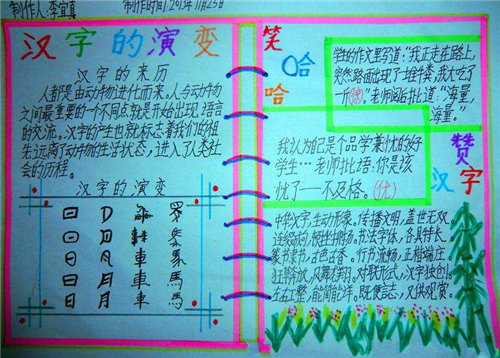 制作人:李宜真
制作时间:2013年11月23日
汉字的演变
汉字的来历
人都是由动物进化而来。人与动物
之间最重要的一个不同点就是开始出现语言
的交流。汉字的产生也就标志着我们的祖
先远离了动物的生活状态,进入了人类社
会的历程。
汉字的演变
日 月 車 馬
笑哈哈
学生的作文里写道:“我正走在路上,
突然路面出现了一堆牛粪,我大吃了
一斤(惊)。”老师阅后批道:“海量,
海量。”
我认为自己是个品学兼忧的好
学生…老师批语:你是该
忧了——不及格。(优)
赞汉字
中华文字,生动形象。传播文明,盖世无双。
篆书隶书,古色古香。行书流畅,正楷端庄。
狂草奔放,风舞龙翔。对联形式,汉字独创。
既便言志,又供观赏。